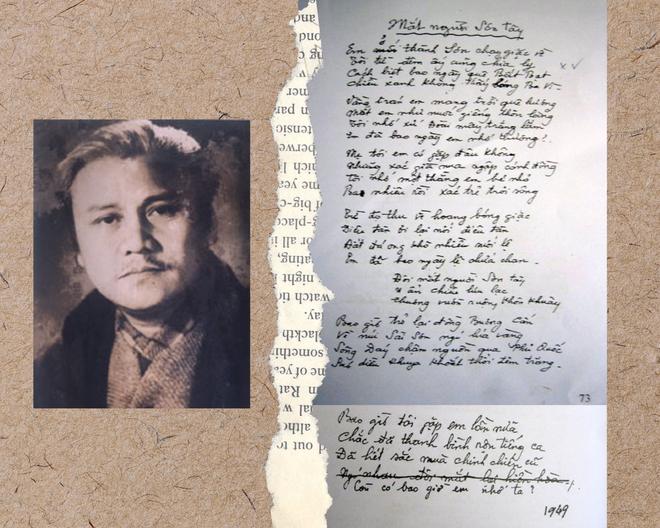 Mắt người Sơn Tây
Em ở thành Sơn chạy giặc về
Tôi từ đêm ấy cũng chia ly
Cách biệt bao ngày quê Bất Bạt
Chiều xanh không thấy bóng Ba Vì
Vầng trán em mang trời quê hương
Mắt em như nước giếng thôn làng
Tôi nhớ xứ Đoài mây trắng lắm
Em đã bao ngày em nhớ thương?.
Mẹ tôi em có gặp đâu không
Những xác già nua ngập cánh đồng
Tôi nhớ một thằng em bé nhỏ
Bao nhiêu rồi xác trẻ trôi sông
Từ độ thu về hoang bóng giặc
Điêu tàn ôi lại nối điêu tàn
Đất đá ong khô nhiều suối lệ
Em đã bao ngày lệ chứa chan.
Đôi mắt người Sơn Tây
U ẩn chiều lưu lạc
Thương vườn ruộng khôn khuây
Bao giờ trở lại đồng Bương Cấn
Về núi Sài Sơn ngó lúa vàng
Sông Đáy chậm nguồn qua Phủ Quốc
Sáo diều khuya khoắt thổi đêm trăng.
73
Bao giờ tôi gặp em lần nữa
Chắc đã thanh bình rộn tiếng ca
Đã hết sắc mùa chinh chiến cũ
Còn có bao giờ em nhớ ta?
1949